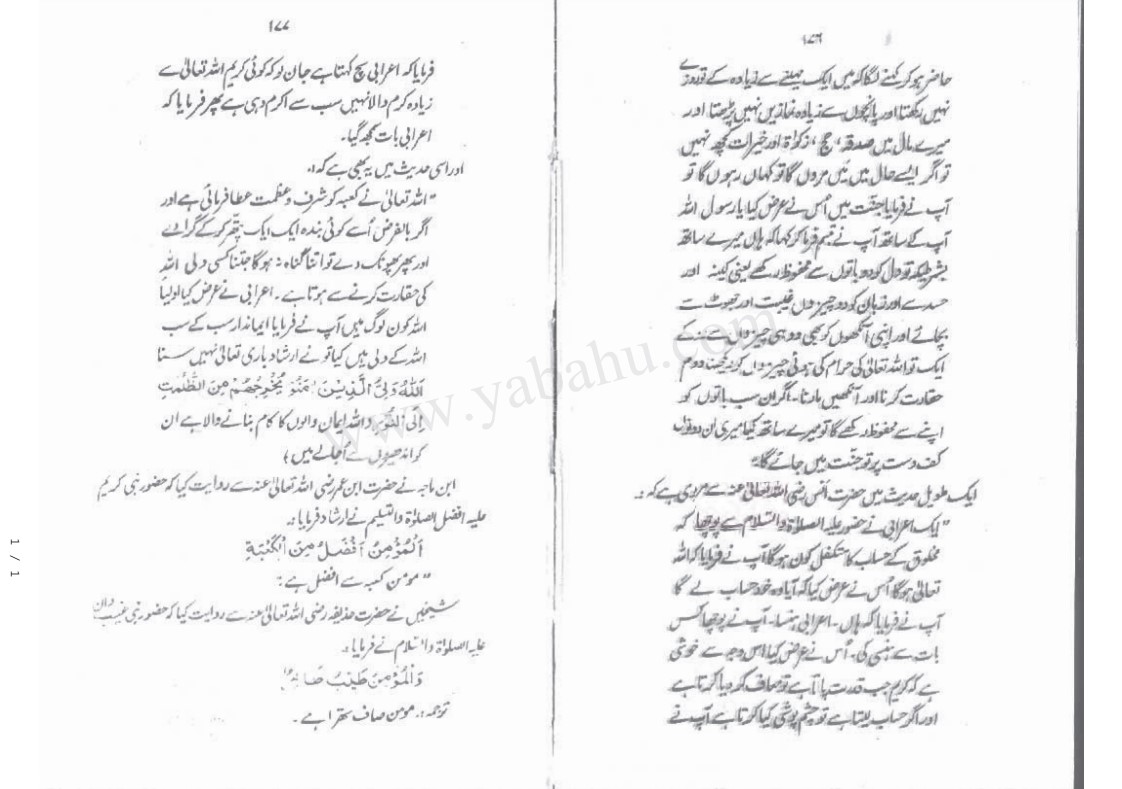 ۱۷۶
حاضر ہوکر کہنے لگا کہ میں ایک مہینے سے زیادہ کے تو روزے
نہیں رکھتا اور پانچوں سے زیادہ نمازیں نہیں پڑھتا اور
میرے مال میں صدقہ، حج، زکوٰۃ اور خیرات کچھ نہیں
تو اگر ایسے حال میں مَیں مروں گا تو کہاں رہوں گا تو
آپ نے فرمایا جنّت میں اُس نے عرض کیا یا رسول اللہ
آپ کے ساتھ آپ نے تبسم فرما کر کہا کہ ہاں میرے ساتھ
بشرطیکہ تو دل کو دو باتوں سے محفوظ رکھے یعنی کینہ اور
حسد سے اور زبان کو دو چیزوں غیبت اور جھوٹ سے
بچائے اور اپنی آنکھوں کو بھی دو ہی چیزوں سے
ایک تو اللہ تعالیٰ کی حرام کی ہوئی چیزوں کو دیکھنا دوم
حقارت کرنا اور آنکھیں مارنا۔ اگر ان سب باتوں کو
اپنے سے محفوظ رکھے گا تو میرے ساتھ کیا میری ان دونوں
کف دست پر تو جنّت میں جائے گا۔"
ایک طویل حدیث میں حضرت انس رضی اللہ تعالیٰ عنہ سے مروی ہے کہ :۔
"ایک اعرابی نے حضور علیہ الصلوٰۃ والسلام سے پوچھا کہ
مخلوق کے حساب کا متکفل کون ہوگا آپ نے فرمایا کہ اللہ
تعالیٰ ہوگا اُس نے عرض کیا کہ آیا وہ خود حساب لے گا
آپ نے فرمایا کہ ہاں۔ اعرابی ہنسا۔ آپ نے پوچھا کس
بات سے ہنسی کی۔ اُس نے عرض کیا اس وجہ سے خوشی
ہے کہ کریم جب قدرت پاتا ہے تو معاف کر دیا کرتا ہے
اور اگر حساب لیتا ہے تو چشم پوشی کیا کرتا ہے آپ نے
۱۷۷
فرمایا کہ اعرابی سچ کہتا ہے جان لو کہ کوئی کریم اللہ تعالیٰ سے
زیادہ کرم والا نہیں سب سے اکرم وہی ہے پھر فرمایا کہ
اعرابی بات سمجھ گیا۔
اور اسی حدیث میں یہ بھی ہے کہ :۔
"اللہ تعالیٰ نے کعبہ کو شرف و عظمت عطا فرمائی ہے اور
اگر بالفرض اُسے کوئی بندہ ایک ایک پتّھر کرکے گرادے
اور پھر پھونک دے تو اتنا گناہ نہ ہوگا جتنا کسی ولی اللہ
کی حقارت کرنے سے ہوتا ہے۔ اعرابی نے عرض کیا اولیاء
اللہ کون لوگ ہیں آپ نے فرمایا ایماندار سب کے سب
اللہ کے ولی ہیں کیا تو نے ارشاد باری تعالیٰ نہیں سنا
اَللّٰهُ وَلِیُّ الَّذِیْنَ اٰمَنُوْ یُخْرِجُهُمْ مِنَ الظُّلُمٰتِ
اِلَی النُّوْرِ (اللہ ایمان والوں کا کام بنانے والا ہے ان
کو اندھیروں سے اُجالے میں)
ابن ماجہ نے حضرت ابن عمر رضی اللہ تعالیٰ عنہ سے روایت کیا کہ حضور نبی کریم
علیہ افضل الصلوٰۃ والتسلیم نے ارشاد فرمایا :۔
اَلْمُؤْمِنُ اَفْضَلُ مِنَ الْکَعْبَةِ
"مومن کعبہ سے افضل ہے :
شیخین نے حضرت حذیفہ رضی اللہ تعالیٰ عنہ سے روایت کیا کہ حضور نبی غیب دان
علیہ الصلوٰۃ والسلام نے فرمایا :۔
وَالْمُؤْمِنُ طَیِّبٌ
ترجمہ :۔ مومن صاف ستھرا ہے۔
www.yabahu.com
1 / 1